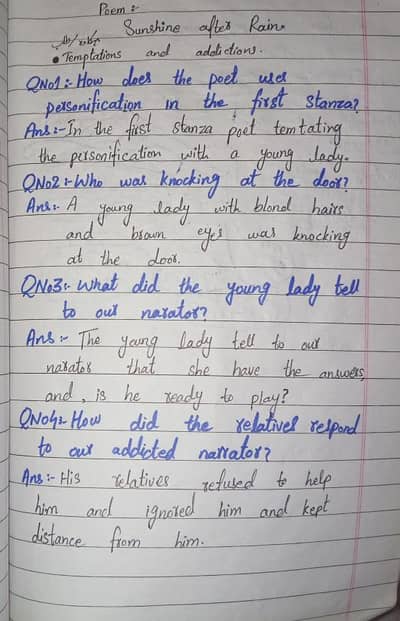 Poem :-
Sunshine after Rain.
• Temptations and addictions.
QNo1:- How does the poet uses
personification in the first stanza?
Ans:- In the first stanza poet temtating
the personification with a young lady.
QNo2:- Who was knocking at the door?
Ans:- A young lady with blond hairs
and brown eyes was knocking
at the door.
QNo3:- What did the young lady tell
to our narator?
Ans:- The young lady tell to our
narator that she have the answers,
and, is he ready to play?
QNo4:- How did the relatives respond
to our addicted narrator?
Ans:- His relatives refused to help
him and ignored him and kept
distance from him.